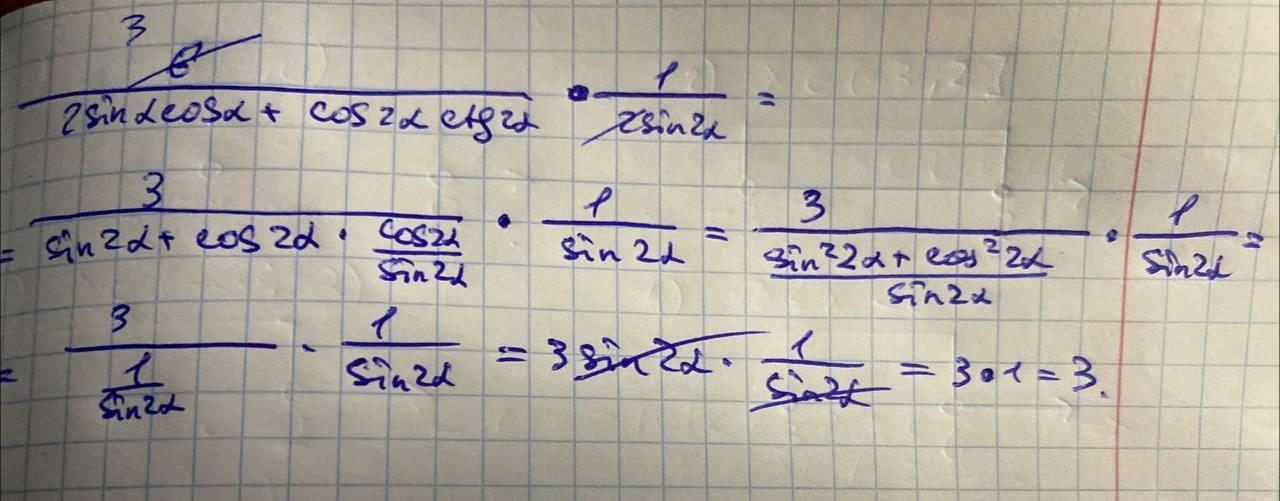 3
6
2sinαcosα + cos2α ctg2α • 1/2sin2α =
= 3/(sin2α + cos2α · cos2α/sin2α) • 1/sin2α = 3/((sin²2α + cos²2α)/sin2α) • 1/sin2α =
= 3/(1/sin2α) · 1/sin2α = 3sin2α · 1/sin2α = 3•1 = 3.